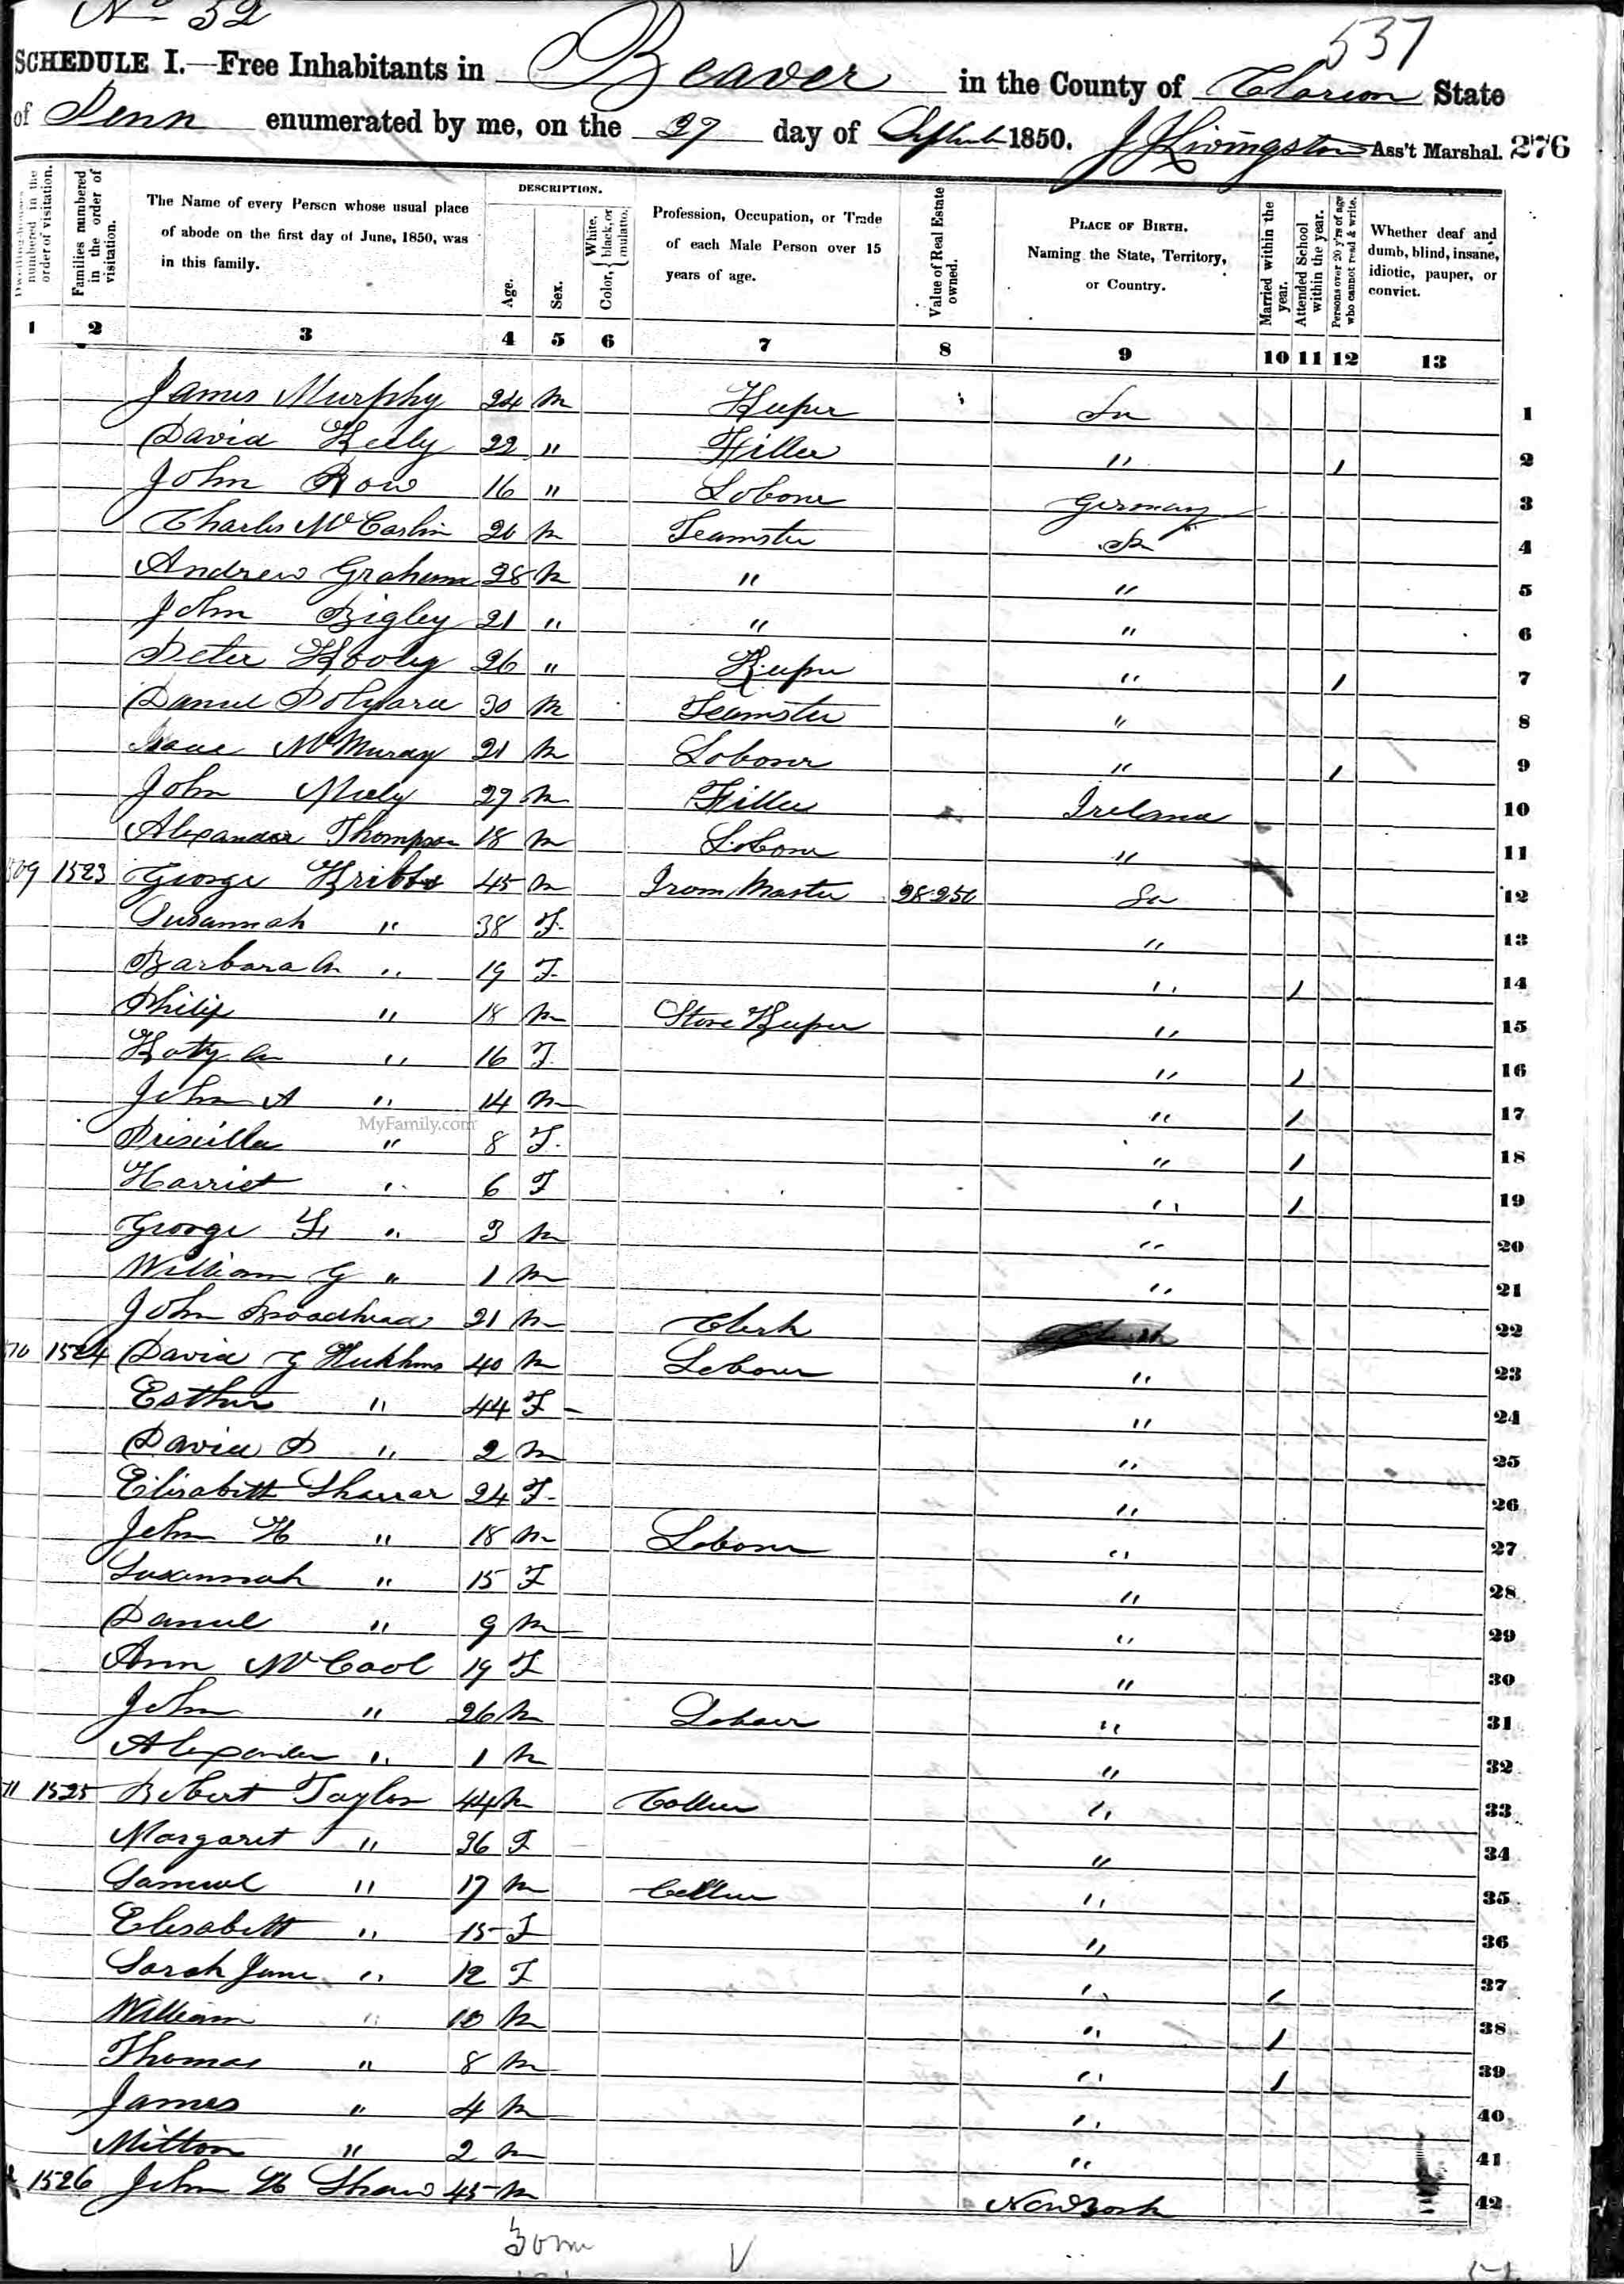 No 52
537
SCHEDULE I.—Free Inhabitants in Beaver in the County of Clarion State
of Penn enumerated by me, on the 27 day of Septemb 1850. J Livingston Ass't Marshal. 276
Dwelling-houses numbered in the order of visitation.
Families numbered in the order of visitation.
The Name of every Person whose usual place of abode on the first day of June, 1850, was in this family.
DESCRIPTION.
Age.
Sex.
Color, { White, black, or mulatto.
Profession, Occupation, or Trade of each Male Person over 15 years of age.
Value of Real Estate owned.
PLACE OF BIRTH. Naming the State, Territory, or Country.
Married within the year.
Attended School within the year.
Persons over 20 y'rs of age who cannot read & write.
Whether deaf and dumb, blind, insane, idiotic, pauper, or convict.
1 2 3 4 5 6 7 8 9 10 11 12 13
James Murphy 24 m Keeper 1
David Keely 22 " Filler " / 2
John Row 16 " Laborer Germany 3
Charles McCaslin 20 m Teamster Pa 4
Andrew Graham 28 m " " 5
John Bigley 21 " " " 6
Peter 26 " Keeper " / 7
Daniel 30 m Teamster " 8
Isaac McMuray 21 m Laborer " / 9
John Neely 27 m Filler Ireland 10
Alexander Thompson 18 m Laborer " 11
1523 George Kribbs 45 m Iron Master 28250 Pa 12
Susannah " 38 F " 13
Barbara An " 19 F " / 14
Philip " 18 m Store Keeper " 15
Katy An " 16 F " / 16
John A " 14 m " / 17
MyFamily.com
Priscilla " 8 F " / 18
Harriet " 6 F " / 19
George F " 3 m " 20
William G " 1 m " 21
John Broadhead 21 m Clerk 22
1524 David G 40 m Laborer " 23
Esther " 44 F " 24
David D " 2 m " 25
Elisabeth Sharrar 24 F " 26
John H " 18 m Laborer " 27
Susannah " 15 F " 28
Daniel " 9 m " 29
Ann McCool 19 F " 30
John " 26 m Laborer " 31
Alexander " 1 m " 32
1525 Robert Taylor 44 m Collier " 33
Margaret " 36 F " 34
Samuel " 17 m Collier " 35
Elesabeth " 15 F " 36
Sarah Jane " 12 F " / 37
William " 10 m " / 38
Thomas " 8 m " / 39
James " 4 m " 40
Milton " 2 m " 41
1526 John 45 m New York 42